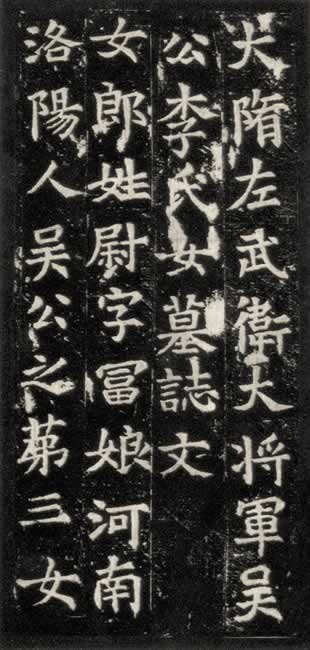 大隋左武衛大将軍吴
公李氏女墓誌文
女郎姓尉字冨娘河南
洛陽人吴公之苐三女